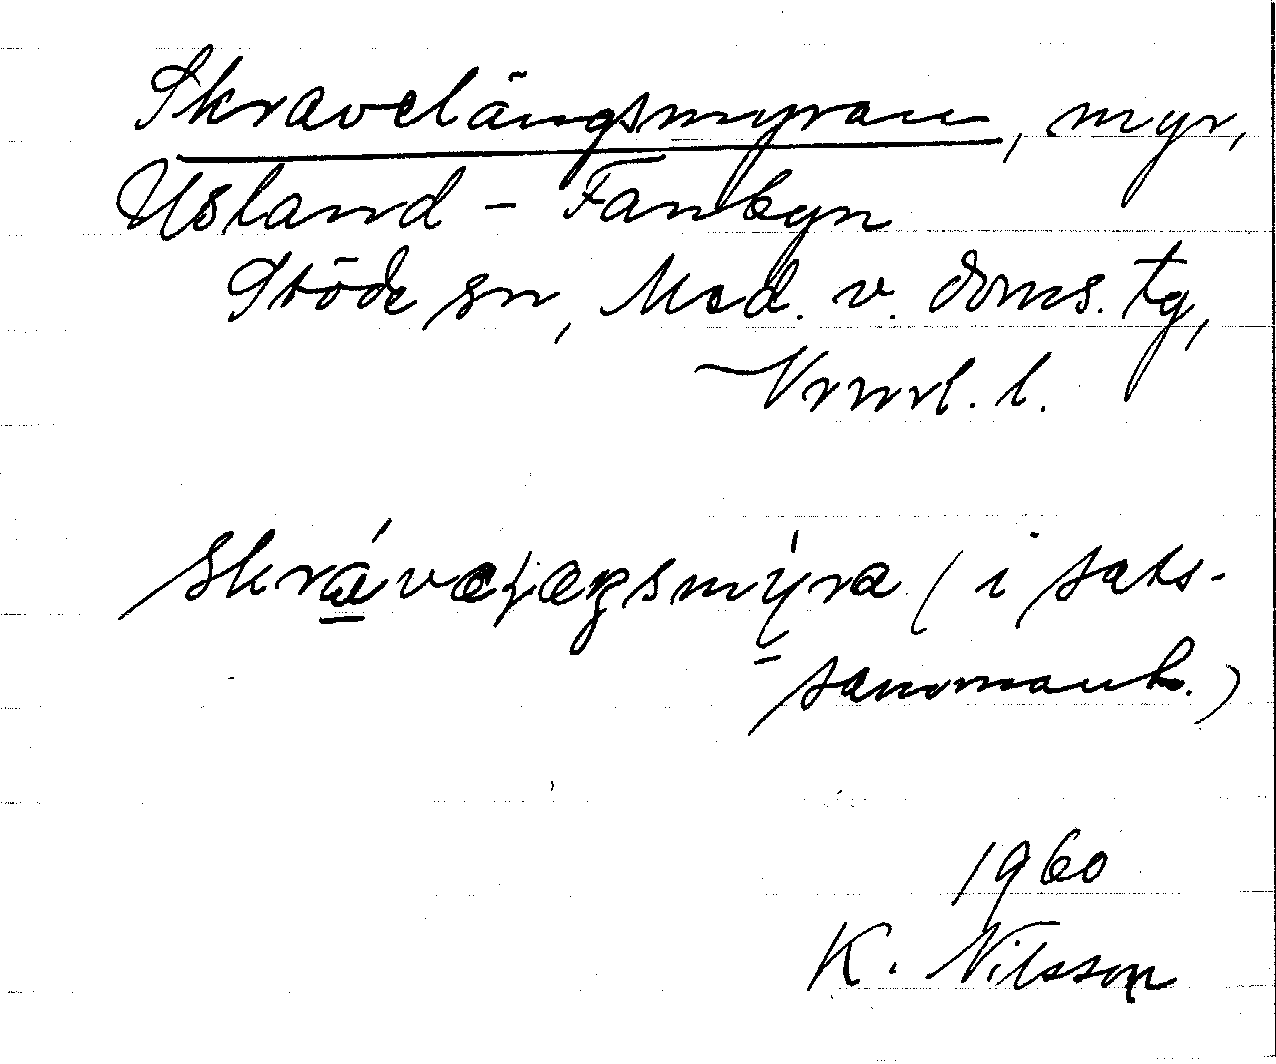 Skravelängsmyran, myr,
Usland - Fanbyn
Stöde sn, Med. v. doms. tg,
Vrnrl. l.
skrávelæŋsmýra (i sats-
sammanh.)
1960
K. Nilsson